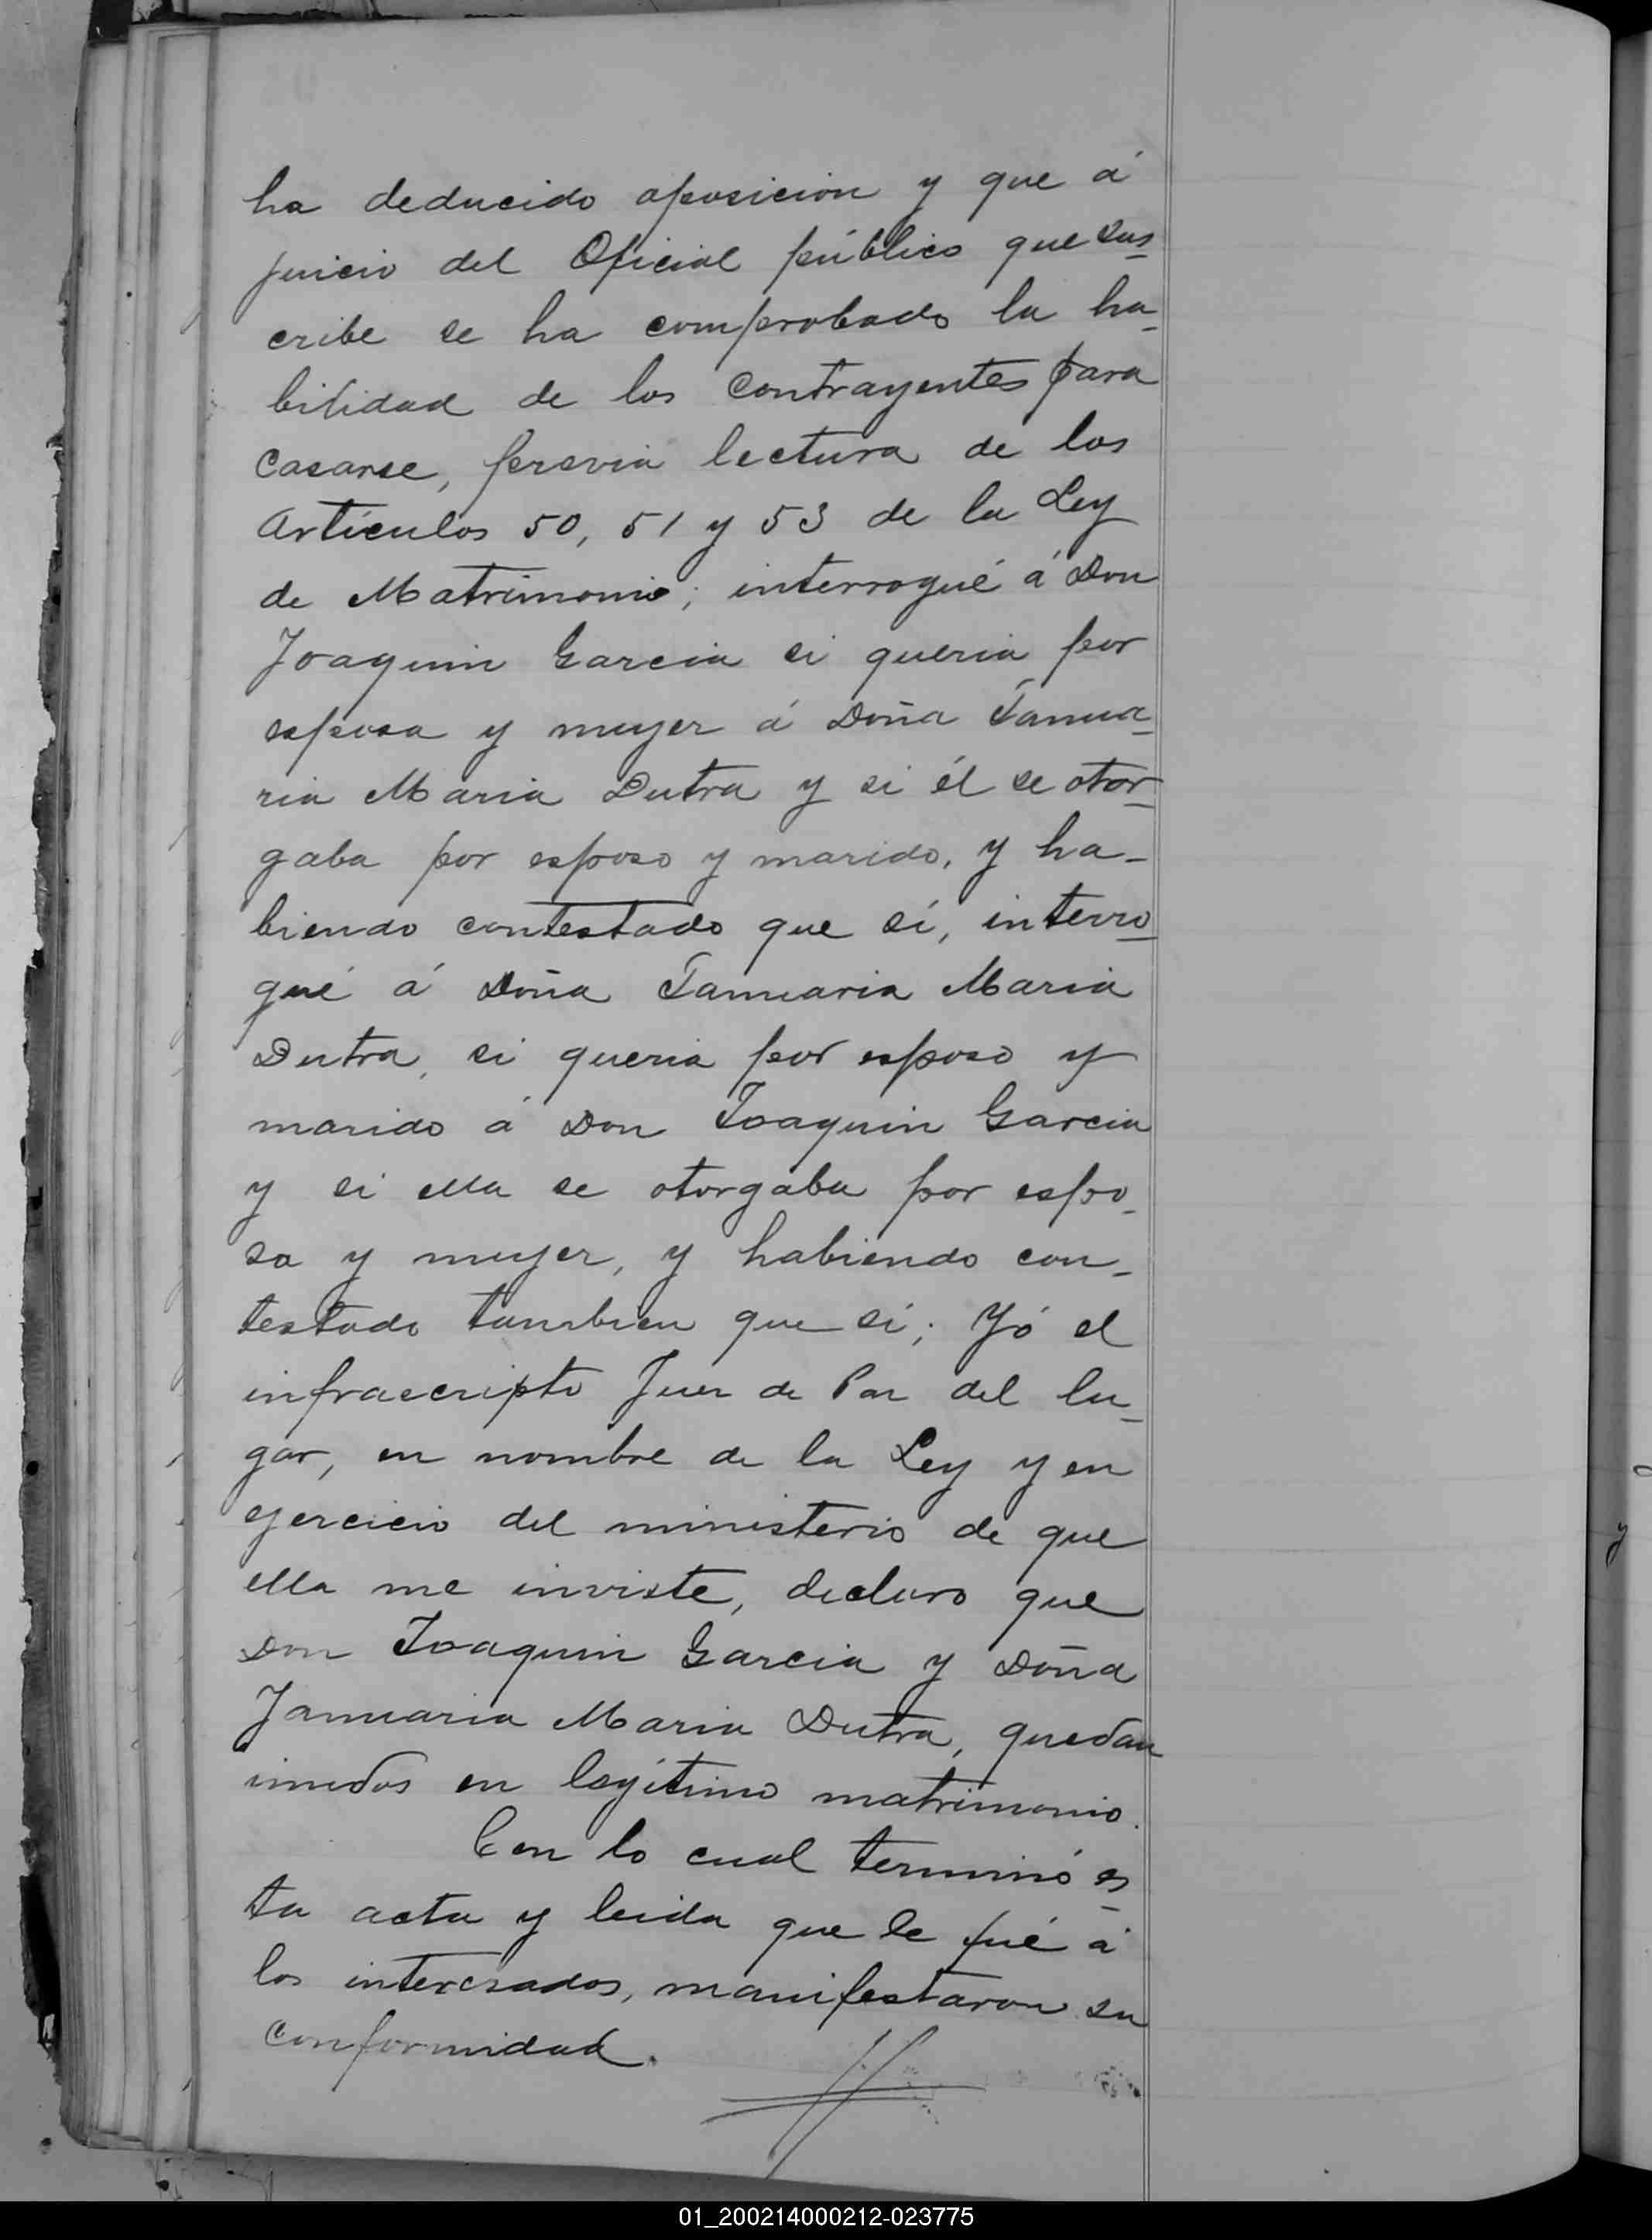 ha deducido oposicion y que á
juicio del Oficial público que sus-
cribe se ha comprobado la ha-
bilidad de los contrayentes para
casarse, previa lectura de los
Artículos 50, 51 y 53 de la Ley
de Matrimonio; interrogué á Don
Joaquin Garcia si queria por
esposa y mujer á Doña Janua-
ria Maria Dutra y si él se otor-
gaba por esposo y marido, y ha-
biendo contestado que sí, interro-
gué á Doña Januaria Maria
Dutra, si queria por esposo y
marido á Don Joaquin Garcia
y si ella se otorgaba por espo-
sa y mujer, y habiendo con-
testado tambien que sí; Yó el
infrascripto Juez de Paz del lu-
gar, en nombre de la Ley y en
ejercicio del ministerio de que
ella me inviste, declaro que
Don Joaquin Garcia y Doña
Januaria Maria Dutra, quedan
unidos en legítimo matrimonio.
Con lo cual terminó es-
ta acta y leida que le fué á
los interesados, manifestaron su
conformidad.
01_200214000212-023775